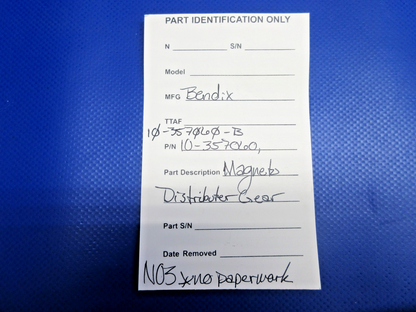 PART IDENTIFICATION ONLY
N S/N
Model
MFG Bendix
TTAF
10-357060-B
P/N 10-357060,
Part Description Magneto
Distributer Gear
Part S/N
Date Removed
NO3 no paperwork